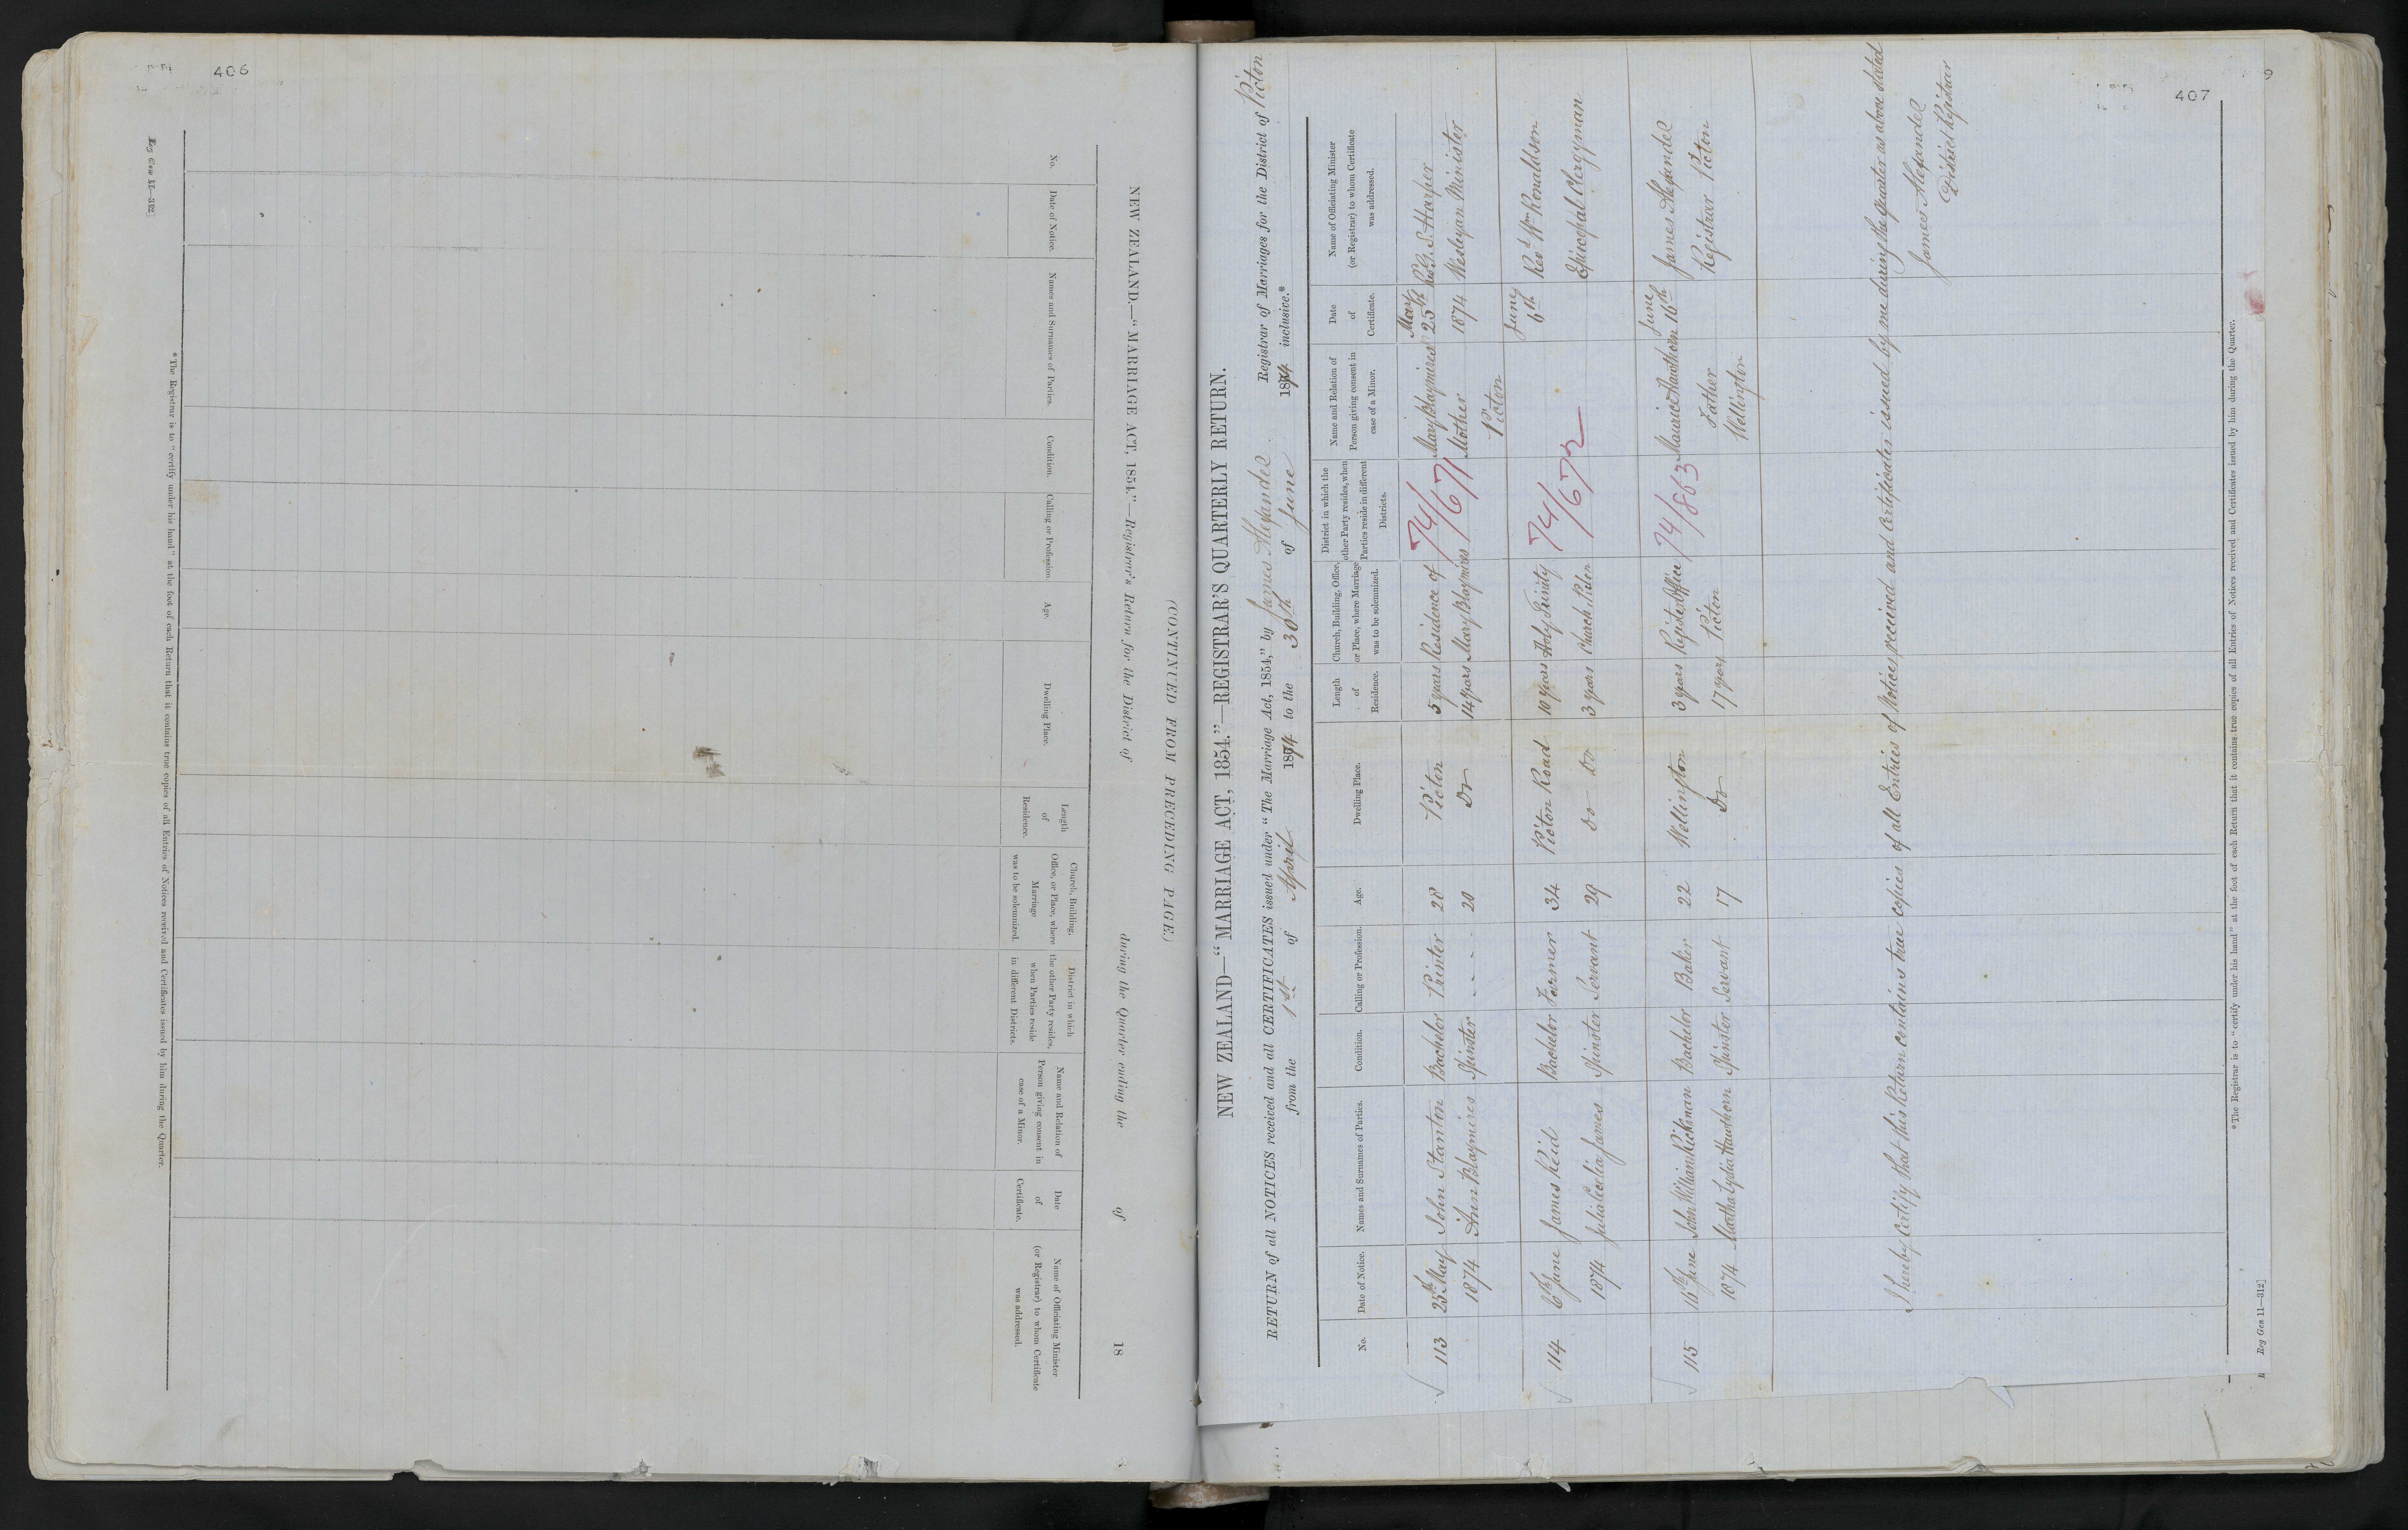 406
Reg Gen 11—312]
NEW ZEALAND.—"MARRIAGE ACT, 1854."—Registrar's Return for the District of during the Quarter ending the of 18
(CONTINUED FROM PRECEDING PAGE.)
No.
Date of Notice.
Names and Surnames of Parties.
Condition.
Calling or Profession.
Age.
Dwelling Place.
Length
of
Residence.
Church, Building,
Office, or Place, where
Marriage
was to be solemnized.
District in which
the other Party resides,
when Parties reside
in different Districts.
Name and Relation of
Person giving consent in
case of a Minor.
Date
of
Certificate.
Name of Officiating Minister
(or Registrar) to whom Certificate
was addressed.
*The Registrar is to "certify under his hand" at the foot of each Return that it contains true copies of all Entries of Notices received and Certificates issued by him during the Quarter.
407
NEW ZEALAND—"MARRIAGE ACT, 1854."—REGISTRAR'S QUARTERLY RETURN.
RETURN of all NOTICES received and all CERTIFICATES issued under "The Marriage Act, 1854," by James Alexander Registrar of Marriages for the District of Picton
from the 1st of April 1874 to the 30th of June 1874 inclusive.*
No.
Date of Notice.
Names and Surnames of Parties.
Condition.
Calling or Profession.
Age.
Dwelling Place.
Length
of
Residence.
Church, Building, Office,
or Place, where Marriage
was to be solemnized.
District in which the
other Party resides, when
Parties reside in different
Districts.
Name and Relation of
Person giving consent in
case of a Minor.
Date
of
Certificate.
Name of Officiating Minister
(or Registrar) to whom Certificate
was addressed.
113 25th May John Stanton Bachelor Printer 28 Picton 5 years Residence of 74/671 Mary Blaymires May 25th Revd G. S. Harper
1874 Ann Blaymires Spinster - - - 20 Do 14 years Mary Blaymires Mother 1874 Wesleyan Minister
Picton
114 6th June James Reid Bachelor Farmer 34 Picton Road 10 years Holy Trinity 74/672 June 6th Revd Wm Ronaldson
1874 Julia Cecilia James Spinster Servant 29 Do Do 3 years Church Picton Episcopal Clergyman
115 16th June John William Rickman Bachelor Baker 22 Wellington 3 years Register Office 74/863 Maurice Hawthorn June 16th James Alexander
1874 Martha Lydia Hawthorn Spinster Servant 17 Do 17 years Picton Father Registrar Picton
Wellington
I hereby Certify that this Return contains true copies of all Entries of Notices received and Certificates issued by me during the quarter as above stated
James Alexander
District Registrar
*The Registrar is to "certify under his hand" at the foot of each Return that it contains true copies of all Entries of Notices received and Certificates issued by him during the Quarter.
Reg Gen 11—312]